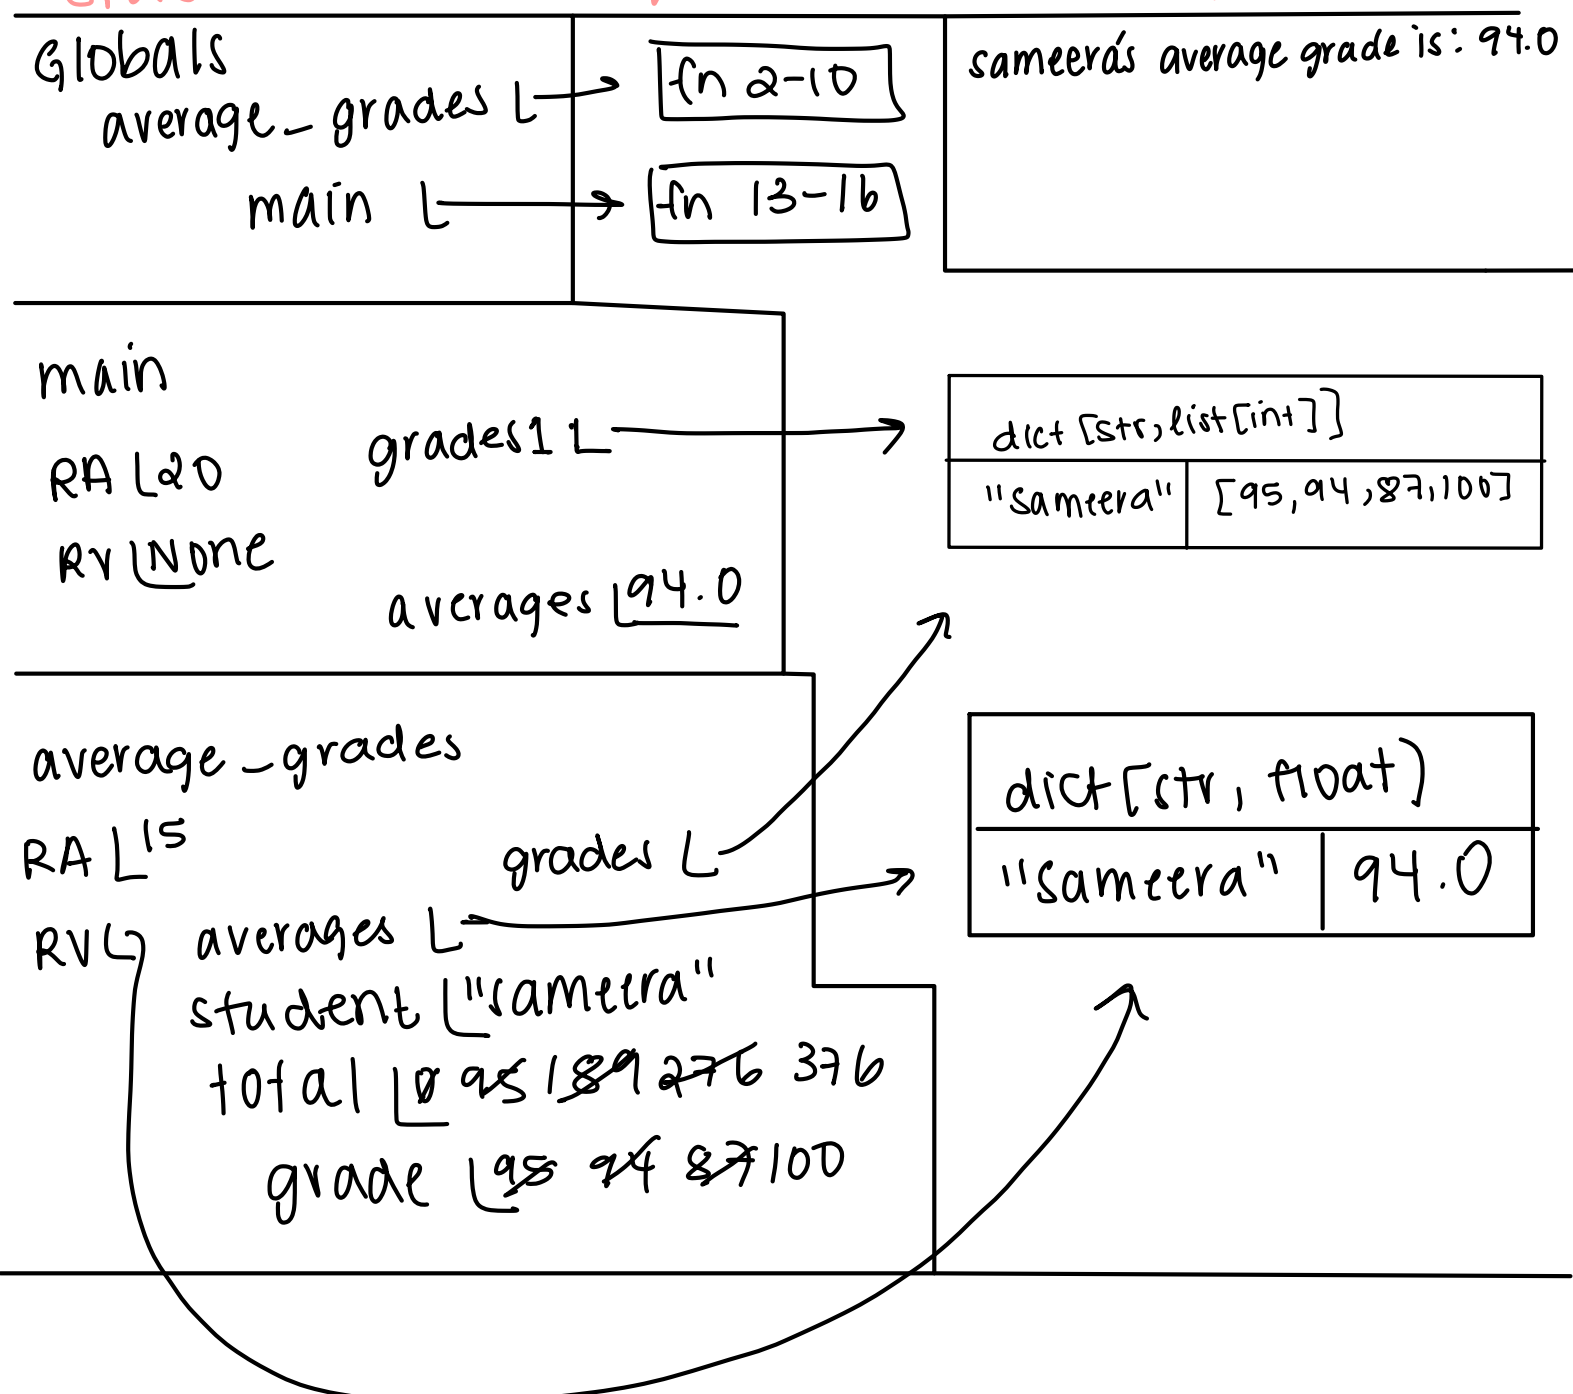 Globals
average_grades
fn 2-10
main
fn 13-16
sameera's average grade is: 94.0
main
RA 20
RV None
grades1
averages 94.0
dict [str, list[int]]
"sameera" [95, 94, 87, 100]
average_grades
RA 15
RV
grades
averages
student "sameera"
total 0 95 189 276 376
grade 95 94 87 100
dict[str, float]
"sameera" 94.0